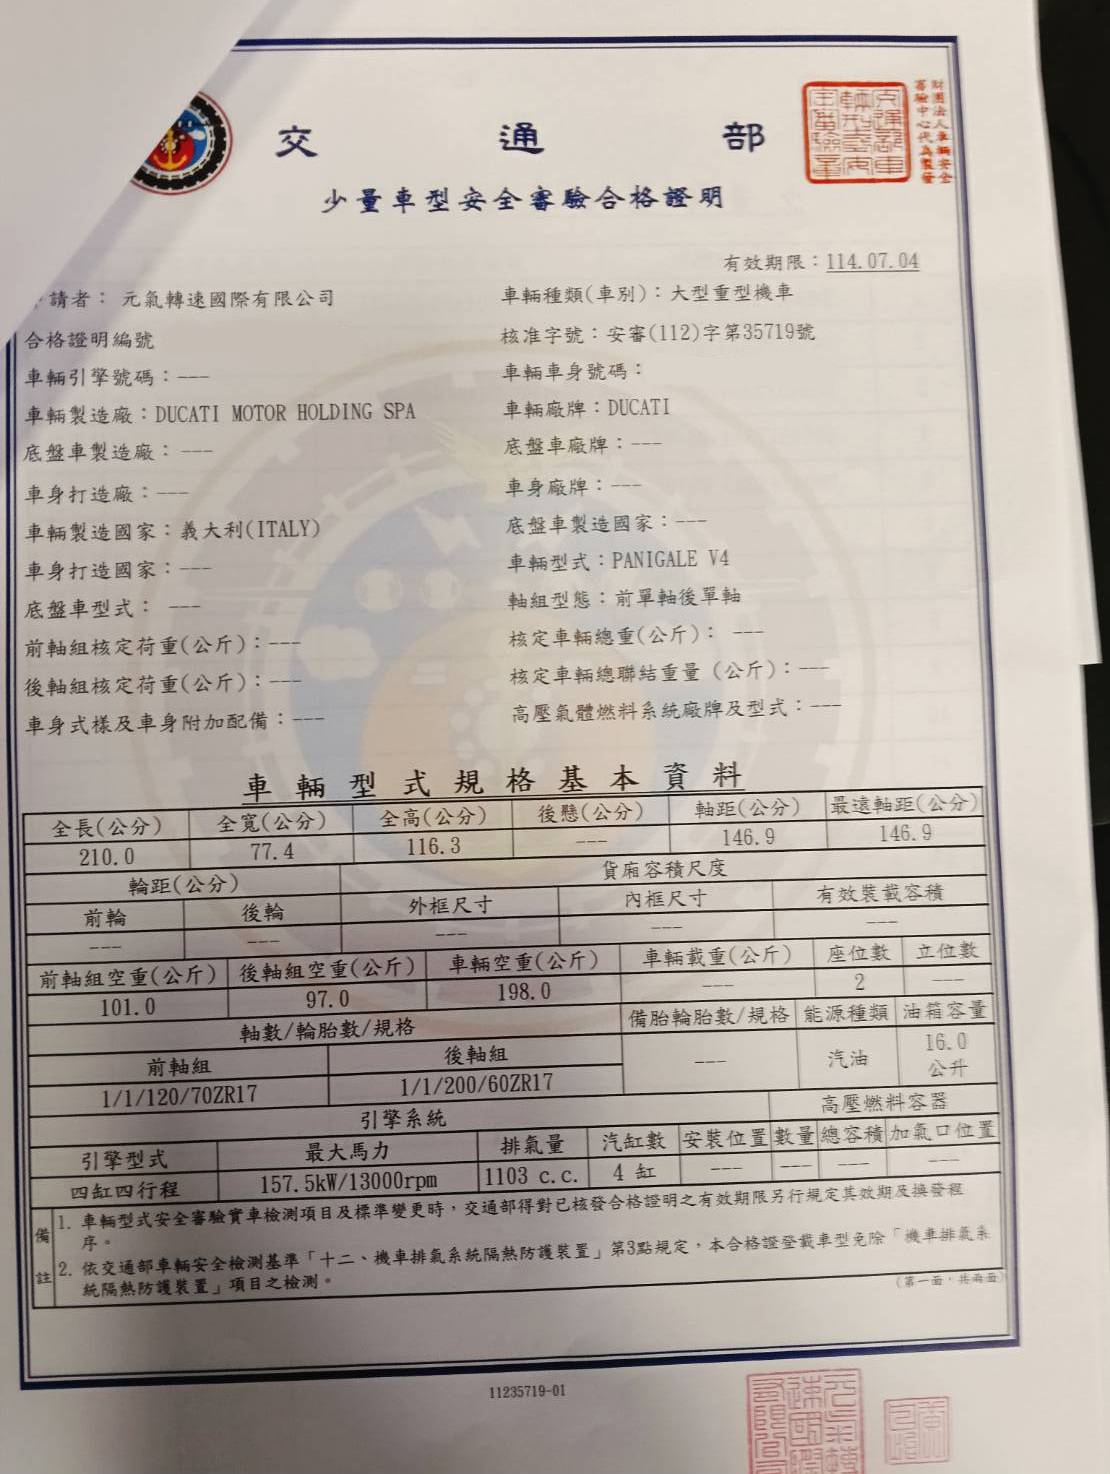 交通部
少量車型安全審驗合格證明
財團法人車輛安全
審驗中心代為製發
有效期限：114.07.04
請者： 元氣轉速國際有限公司
車輛種類(車別)：大型重型機車
合格證明編號
核准字號：安審(112)字第35719號
車輛引擎號碼：---
車輛車身號碼：
車輛製造廠：DUCATI MOTOR HOLDING SPA
車輛廠牌：DUCATI
底盤車製造廠： ---
底盤車廠牌：---
車身打造廠：---
車身廠牌：---
車輛製造國家：義大利(ITALY)
底盤車製造國家：---
車身打造國家：---
車輛型式：PANIGALE V4
底盤車型式： ---
軸組型態：前單軸後單軸
前軸組核定荷重(公斤)：---
核定車輛總重(公斤)： ---
後軸組核定荷重(公斤)：---
核定車輛總聯結重量（公斤)：---
車身式樣及車身附加配備：---
高壓氣體燃料系統廠牌及型式：---
車輛型式規格基本資料
全長(公分) 全寬(公分) 全高(公分) 後懸(公分) 軸距(公分) 最遠軸距(公分)
210.0 77.4 116.3 --- 146.9 146.9
輪距(公分) 貨廂容積尺度
前輪 後輪 外框尺寸 內框尺寸 有效裝載容積
--- --- --- --- ---
前軸組空重(公斤) 後軸組空重(公斤) 車輛空重(公斤) 車輛載重(公斤) 座位數 立位數
101.0 97.0 198.0 --- 2 ---
軸數/輪胎數/規格 備胎輪胎數/規格 能源種類 油箱容量
前軸組 後軸組 --- 汽油 16.0
公升
1/1/120/70ZR17 1/1/200/60ZR17
引擎系統 高壓燃料容器
引擎型式 最大馬力 排氣量 汽缸數 安裝位置 數量 總容積 加氣口位置
四缸四行程 157.5kW/13000rpm 1103 c.c. 4 缸 --- --- --- ---
備註
1. 車輛型式安全審驗實車檢測項目及標準變更時，交通部得對已核發合格證明之有效期限另行規定其效期及換發程
序。
2. 依交通部車輛安全檢測基準「十二、機車排氣系統隔熱防護裝置」第3點規定，本合格證登載車型免除「機車排氣系
統隔熱防護裝置」項目之檢測。
(第一面，共兩面)
11235719-01